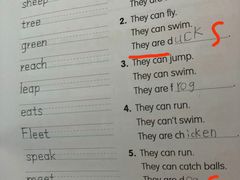 sheep
tree
green
reach
leap
eats
Fleet
speak
They can fly.
2. They can swim.
They are ducks
3. They can jump.
They can swim.
They are frog
4. They can run.
They can't swim.
They are chicken
5. They can run.
They can catch balls.
They are dog s